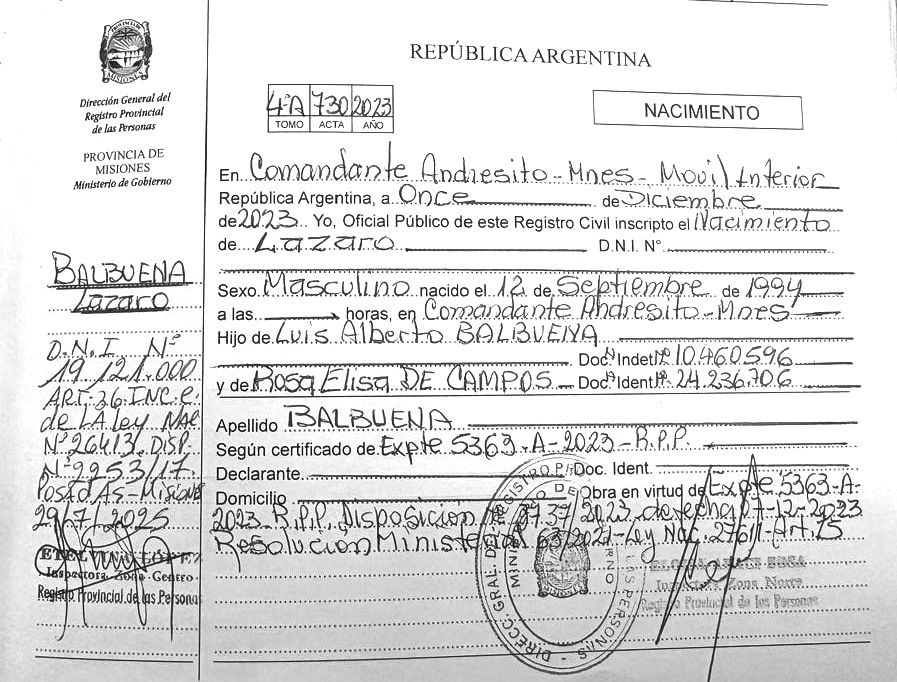 PROVINCIA DE
MISIONES
Dirección General del
Registro Provincial
de las Personas
PROVINCIA DE
MISIONES
Ministerio de Gobierno
BALBUENA
Lazaro
D.N.I Nº
19.121.000
ART.36.INC.C.
de LA Ley NAC
Nº 26413. DISP.
Nº 2253/17.
POSADAS-MISIONES
29/7/2025
LÓPEZ
Inspectora Zona Centro
Registro Provincial de las Personas
REPÚBLICA ARGENTINA
4ºA 730 2023
TOMO ACTA AÑO
NACIMIENTO
En Comandante Andresito - Mnes - Movil Interior
República Argentina, a Once de Diciembre
de 2023 Yo, Oficial Público de este Registro Civil inscripto el Nacimiento
de Lazaro D.N.I. Nº
Sexo Masculino nacido el 12 de Septiembre de 1994
a las horas, en Comandante Andresito - Mnes
Hijo de Luis Alberto BALBUENA
Doc. Ident Nº 10.460.596
y de Rosa Elisa DE CAMPOS Doc. Ident Nº 24.236.706
Apellido BALBUENA
Según certificado de Expte 5363-A-2023-R.P.P.
Declarante Doc. Ident.
Domicilio Obra en virtud de Expte 5363-A-
2023-R.P.P. Disposicion 2023 de fecha 07-12-2023
Resolución Ministerial 63/2021-Ley Nac. 27611-Art. 15
SOSA
Inspectora Zona Norte
Registro Provincial de las Personas
DIRECC. GRAL. DE REGISTRO P. DE LAS PERSONAS